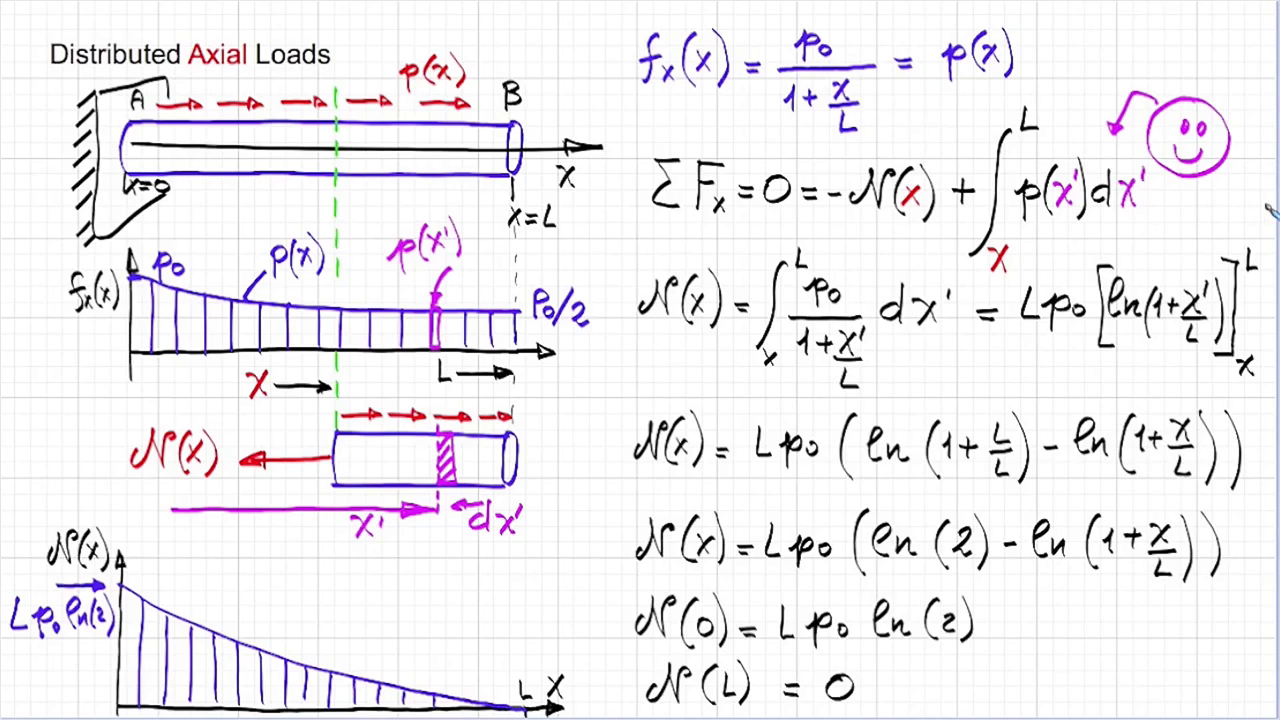 Distributed Axial Loads
p(x)
A
B
x
x=0
x=L
f_x(x)
p₀
p(x)
p(x')
p₀/2
x
L
N(x)
x'
dx'
N(x)
Lp₀ ln(2)
L x
f_x(x) = p₀/(1+x/L) = p(x)
∑F_x = 0 = -N(x) + ∫_x^L p(x')dx'
N(x) = ∫_x^L p₀/(1+x'/L) dx' = Lp₀[ln(1+x'/L)]_x^L
N(x) = Lp₀(ln(1+L/L) - ln(1+x/L))
N(x) = Lp₀(ln(2) - ln(1+x/L))
N(0) = Lp₀ ln(2)
N(L) = 0